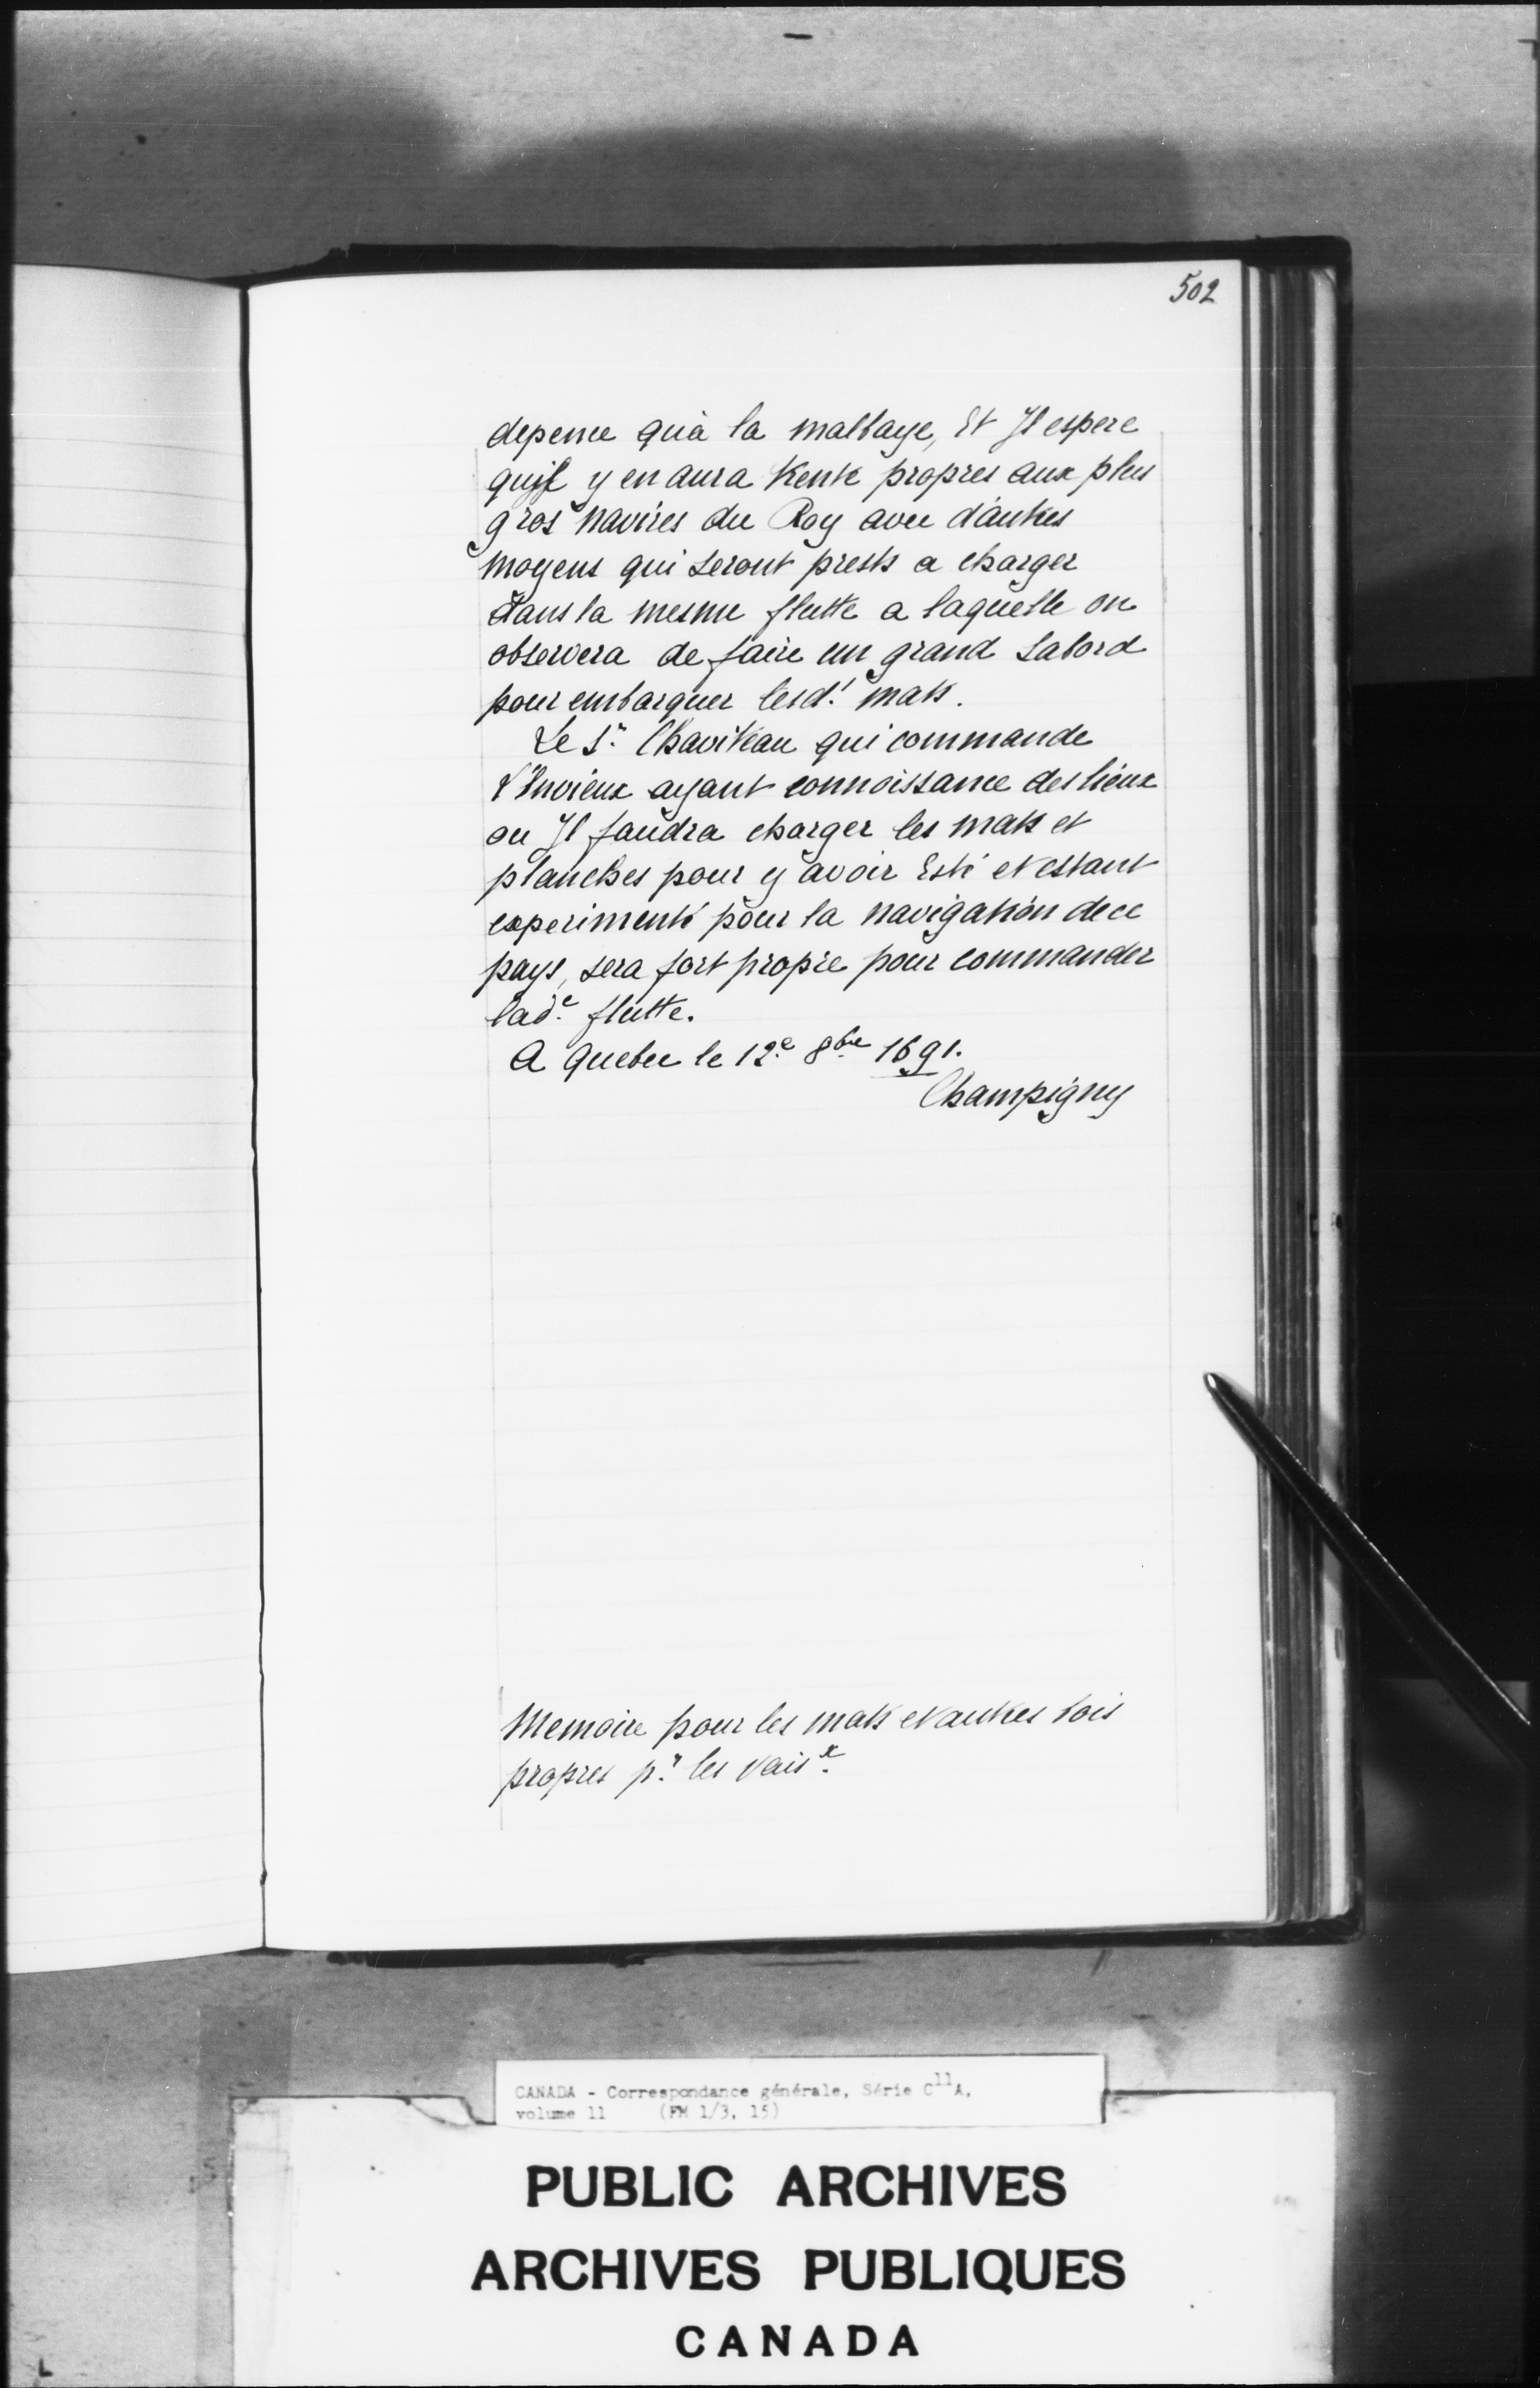 502
depence qu'à la malbaye, Et Jl espere
qu'jl y en aura trente propres aux plus
gros navires du Roy avec d'autres
moyens qui seront prests a charger
dans la mesme flutte a laquelle on
observera de faire un grand sabord
pour embarquer lesd.ts mats.
Le Sr. Chaviteau qui commande
L'Envieux ayant connoissance des lieux
ou Jl faudra charger les mats et
planches pour y avoir Esté et estant
experimenté pour la navigation de ce
pays, sera fort propre pour commander
lad.e flutte.
A Quebec le 12.e 8bre 1691.
Champigny
Memoire pour les mats et autres bois
propres p.r les vaisx.
CANADA - Correspondance générale, Série C11A,
volume 11 (FM 1/3, 15)
PUBLIC ARCHIVES
ARCHIVES PUBLIQUES
CANADA
L